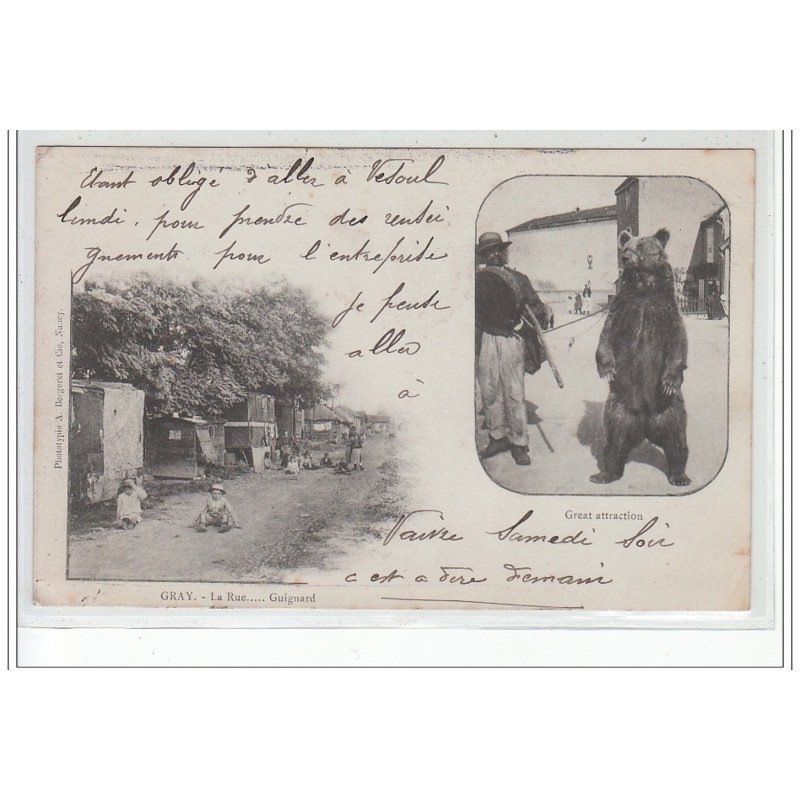 Etant obligé d'aller à Vesoul
lundi, pour prendre des rensei
gnements pour l'entreprise
je pense
aller
à
Vaivre Samedi Soir
c est a dire demain
Great attraction
GRAY. - La Rue..... Guignard
Phototypie A. Bergeret et Cie, Nancy.